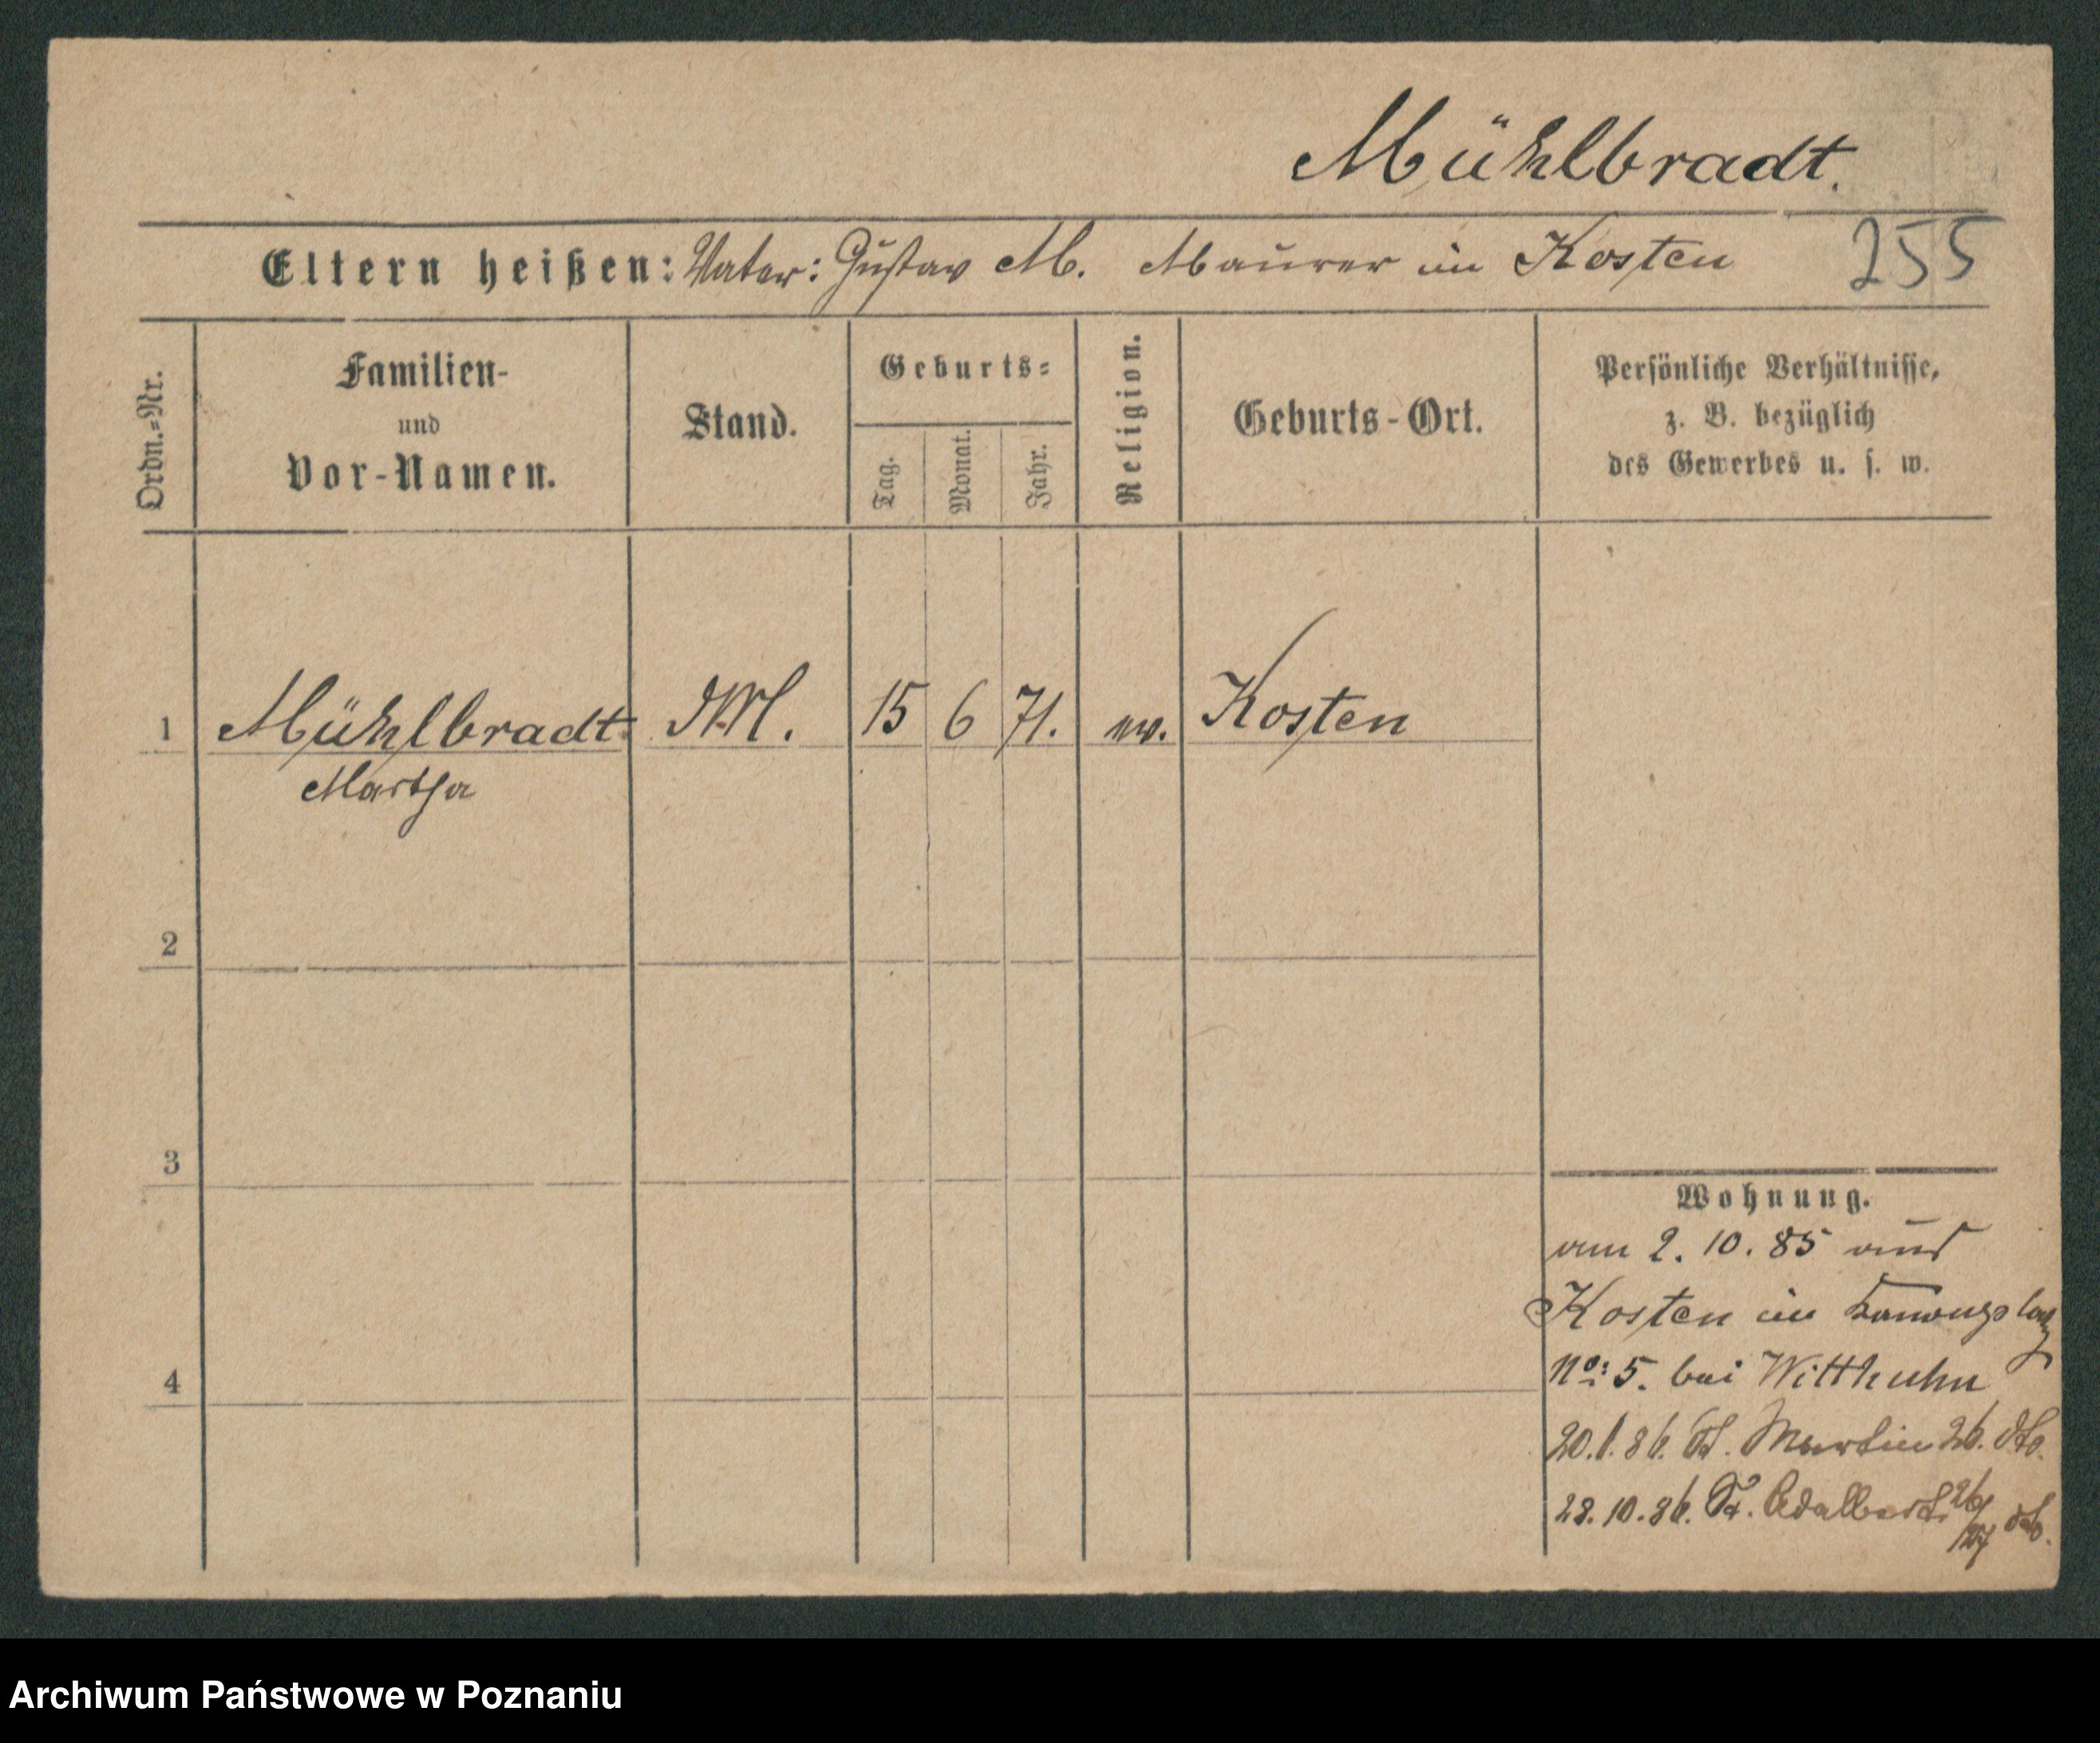 Mühlbradt.
Eltern heißen: Vater: Gustav M. Maurer in Kosten
255
Ordn.-Nr.
Familien-
und
Vor-Namen.
Stand.
Geburts-
Tag.
Monat.
Jahr.
Religion.
Geburts-Ort.
Persönliche Verhältnisse,
z. B. bezüglich
des Gewerbes u. s. w.
1 Mühlbradt 15 6 71. ev. Kosten
Martha
2
3
4
Wohnung.
am 2. 10. 85 aus
Kosten in
No: 5. bei Witthuhn
20.1.86. St. Martin 26. dto.
28.10.86. St. Adalbert 26/27 dto.
Archiwum Państwowe w Poznaniu